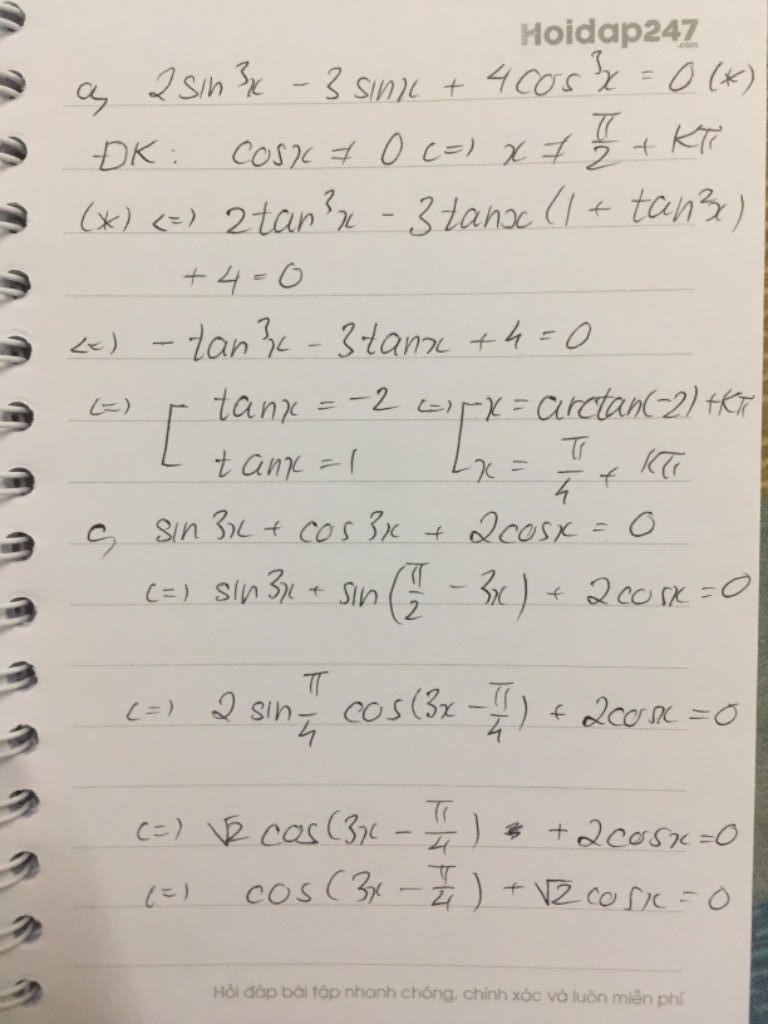 Hoidap247
.com
a, 2sin³x - 3sinx + 4cos³x = 0 (*)
ĐK: cosx ≠ 0 <=> x ≠ π/2 + Kπ
(*) <=> 2tan³x - 3tanx (1 + tan²x)
+ 4 = 0
<=> - tan³x - 3tanx + 4 = 0
<=> [ tanx = -2 <=> [ x = arctan(-2) + Kπ
tanx = 1 x = π/4 + Kπ
c, sin3x + cos3x + 2cosx = 0
<=> sin3x + sin(π/2 - 3x) + 2cosx = 0
<=> 2 sin π/4 cos(3x - π/4) + 2cosx = 0
<=> √2 cos(3x - π/4) + 2cosx = 0
<=> cos(3x - π/4) + √2 cosx = 0
Hỏi đáp bài tập nhanh chóng, chính xác và luôn miễn phí